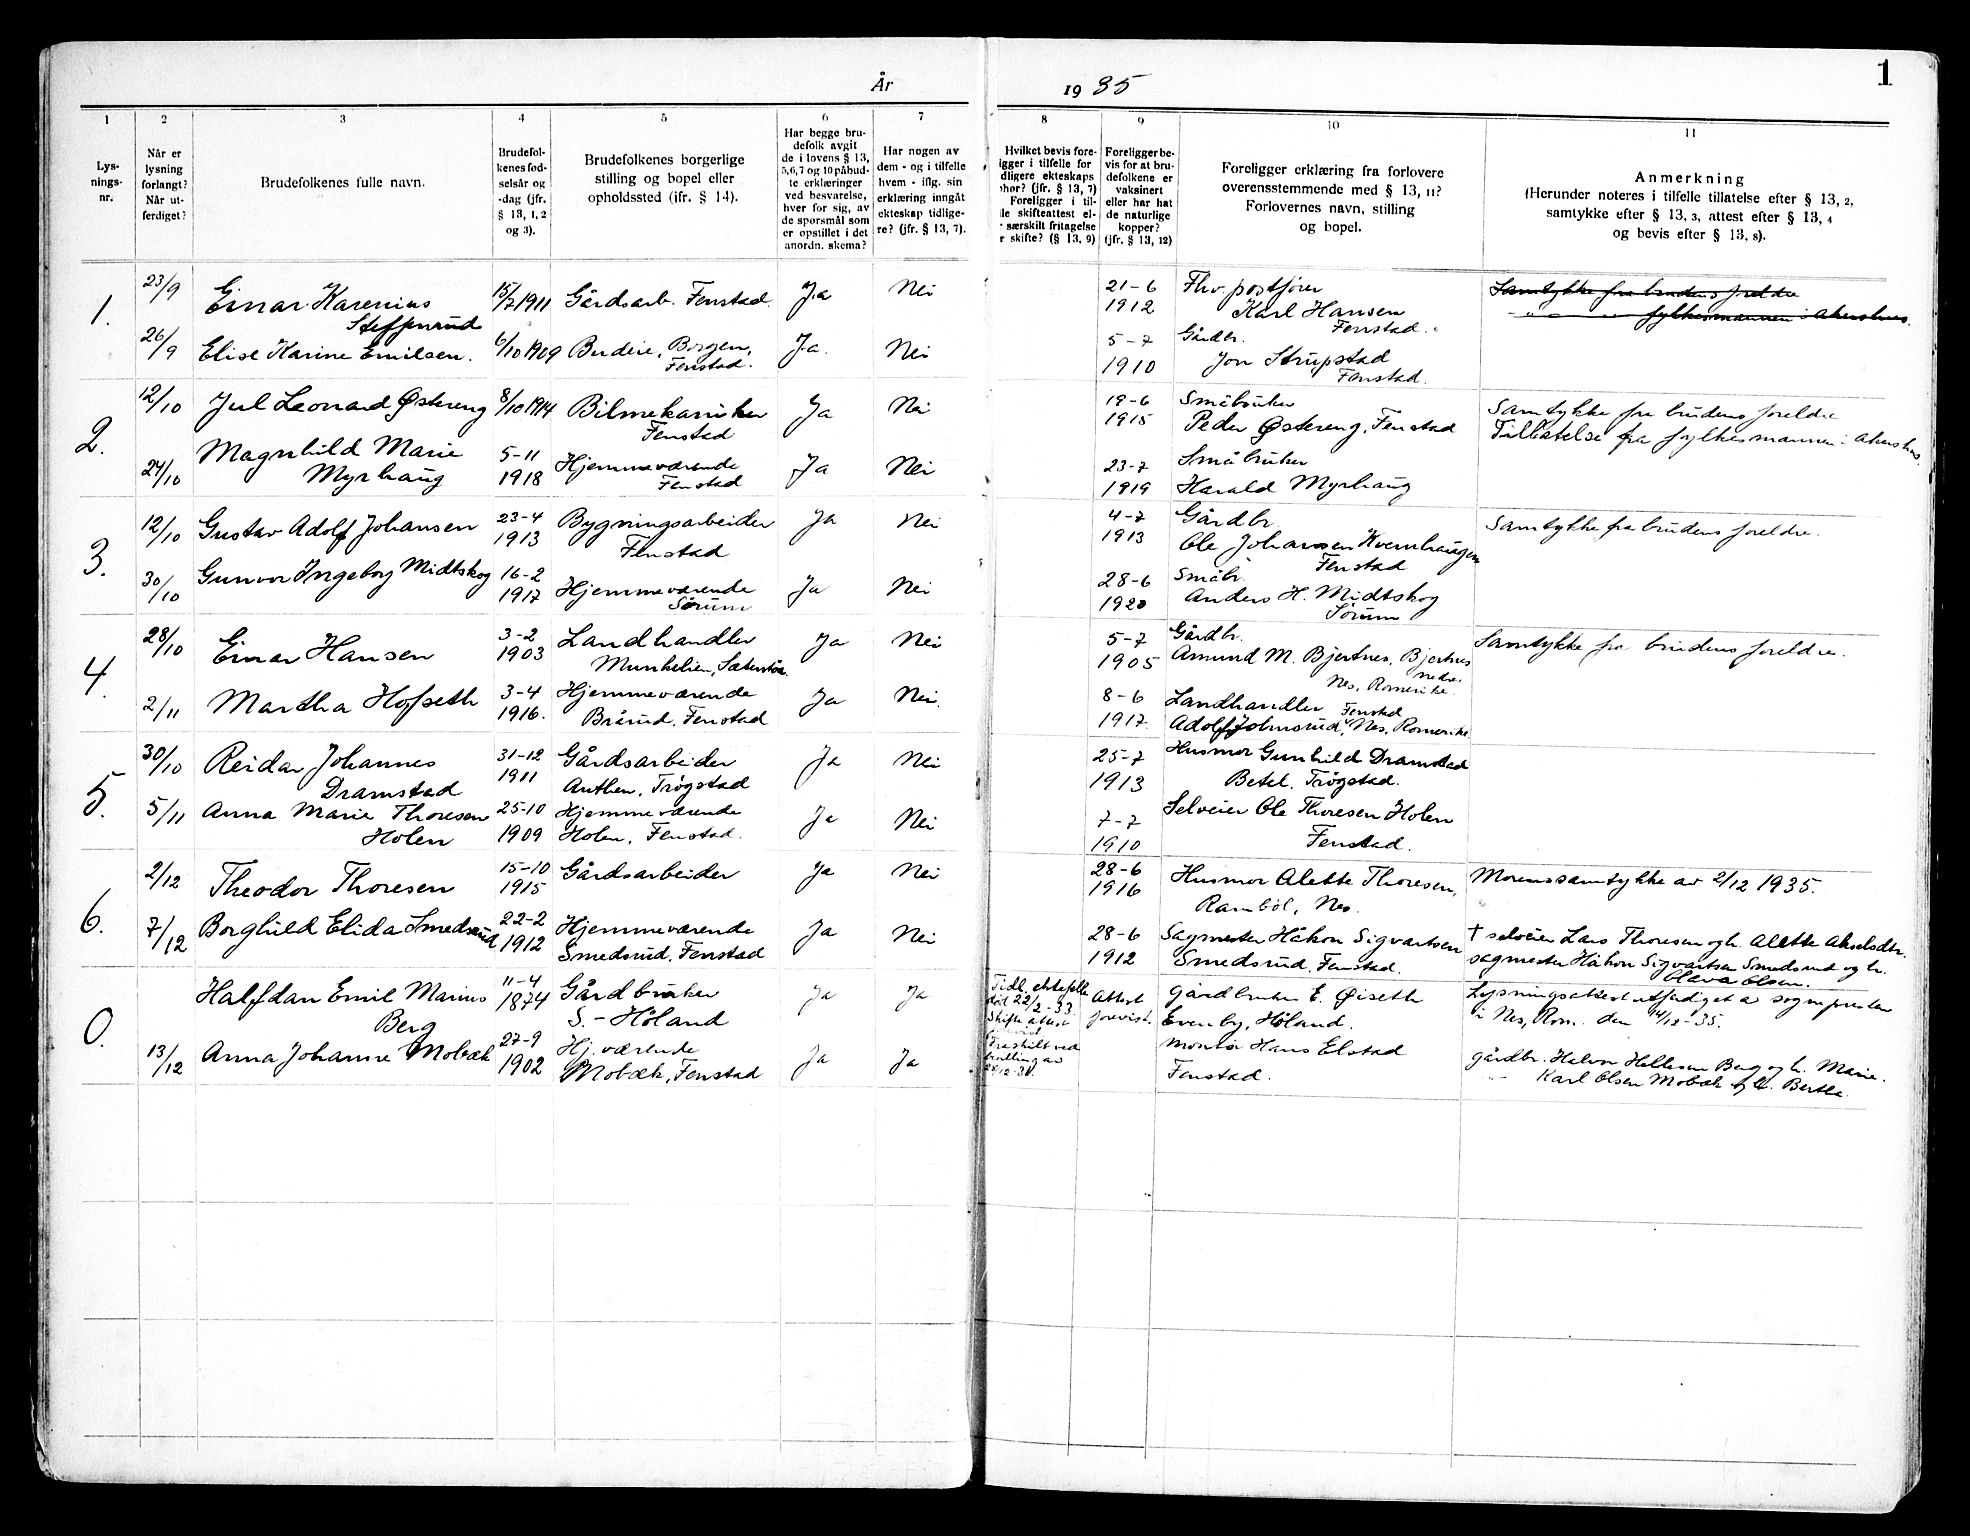 År 1935
1
1 2 3 4 5 6 7 8 9 10 11
Lys-
nings-
nr.
Når er
lysning
forlangt?
Når ut-
ferdiget?
Brudefolkenes fulle navn.
Brudefol-
kenes fød-
selsår og
-dag (jfr.
§ 13, 1, 2
og 3).
Brudefolkenes borgerlige
stilling og bopel eller
opholdssted (ifr. § 14).
Har begge bru-
defolk avgit
de i lovens § 13,
5,6,7 og 10 påbud-
te erklæringer
ved besvarelse,
hver for sig, av
de spørsmål som
er opstillet i det
anordn. skema?
Har nogen av
dem - og i tilfelle
hvem - iflg. sin
erklæring inngått
ekteskap tidlige-
re? (jfr. § 13, 7).
Hvilket bevis fore-
ligger i tilfelle for
dligere ekteskaps
phør? (jfr. § 13, 7)
Foreligger i til-
lle skifteattest el-
særskilt fritagelse
r skifte? (§ 13, 9)
Foreligger be-
vis for at bru-
defolkene er
vaksinert
eller har hat
de naturlige
kopper?
(jfr. § 13, 12)
Foreligger erklæring fra forlovere
overensstemmende med § 13, 11?
Forlovernes navn, stilling
og bopel.
Anmerkning
(Herunder noteres i tilfelle tillatelse efter § 13, 2,
samtykke efter § 13, 3, attest efter § 13, 4
og bevis efter § 13, 8).
1.
23/9
26/9
Einar Karenius
Steffensrud
15/7 1911
Gårdsarb. Fenstad
Ja
Nei
21-6
1912
Fhv postfører
Karl Hansen
Fenstad.
Samtykke fra brudens foreldre
- " - " fylkesmannen i Akershus.
Elise Karine Emilsen.
6/10 1909
Budeie, Borgen,
Fenstad.
Ja.
Nei
5-7
1910
Gårdbr.
Jon Strupstad
Fenstad.
2.
12/10
24/10
Jul Leonard Østereng
8/10 1914
Bilmekaniker
Fenstad
Ja
Nei
19-6
1915
Småbruker
Peder Østereng, Fenstad
Samtykke fra brudens foreldre
Tillatelse fra fylkesmannen i Akershus.
Magnhild Marie
Myrhaug
5-11
1918
Hjemmeværende
Fenstad
Ja
Nei
23-7
1919
Småbruker
Harald Myrhaug
3.
12/10
30/10
Gustav Adolf Johansen
23-4
1913
Bygningsarbeider
Fenstad
Ja
Nei
4-7
1913
Gårdbr.
Ole Johansen Kvernhaugen
Fenstad
Samtykke fra brudens foreldre.
Gunvor Ingeborg Midtskog
16-2
1917
Hjemmeværende
Sørum
Ja
Nei
28-6
1920
Småbr.
Anders H. Midtskog
Sørum
4.
28/10
2/11
Einar Hansen
3-2
1903
Landhandler
Munkelien,
Ja
Nei
5-7
1905
Gårdbr.
Amund M. Bjertnes, Bjertnes
nedre.
Nes, Romerike.
Samtykke fra brudens foreldre.
Martha Hofseth
3-4
1916.
Hjemmeværende
Brårud, Fenstad
Ja
Nei.
8-6
1917.
Landhandler Fenstad
Adolf Johnsrud, Nes, Romerike
5.
30/10
5/11
Reidar Johannes
Dramstad
31-12
1911
Gårdsarbeider
Anthen, Trøgstad
Ja
Nei
25-7
1913
Husmor Gunhild Dramstad
Betel, Trøgstad.
Anna Marie Thoresen
Holen
25-10
1909
Hjemmeværende
Holen, Fenstad.
Ja
Nei
7-7
1910
Selveier Ole Thoresen Holen
Fenstad.
6.
2/12
7/12
Theodor Thoresen
15-10
1915
Gårdsarbeider
Ja
Nei
28-6
1916
Husmor Alette Thoresen,
Rambøl, Nes.
Morens samtykke av 2/12 1935.
Borghild Elida Smedsrud
22-2
1912
Hjemmeværende
Smedsrud, Fenstad
Ja
Nei
28-6
1912
Sagmester Håkon Sigvartsen
Smedsrud, Fenstad.
† selveier Lars Thoresen og h. Alette Akselsdtr.
sagmester Håkon Sigvartsen Smedsrud og h.
Olava Olsen.
0.
13/12
Halfdan Emil Marius
Berg
11-4
1874
Gårdbruker
S.-Høland
Ja
Ja
Tidl. ektefelle
død 22/2-33.
Skifteattest
Attest
forevist.
Gårdbruker E. Øiseth
Evenby, Høland.
Lysningsattest utferdiget av sognepresten
i Nes, Rom. den 14/12-35.
Anna Johanne Mobæk
27-9
1902
Hj. værende
Mobæk, Fenstad
Ja
Ja
Fraskilt ved
bevilling av
Montør Hans Elstad
Fenstad.
gårdbr. Halvor Hellesen Berg og h. Marie.
- " - Karl Olsen Mobæk og h. Berthe.